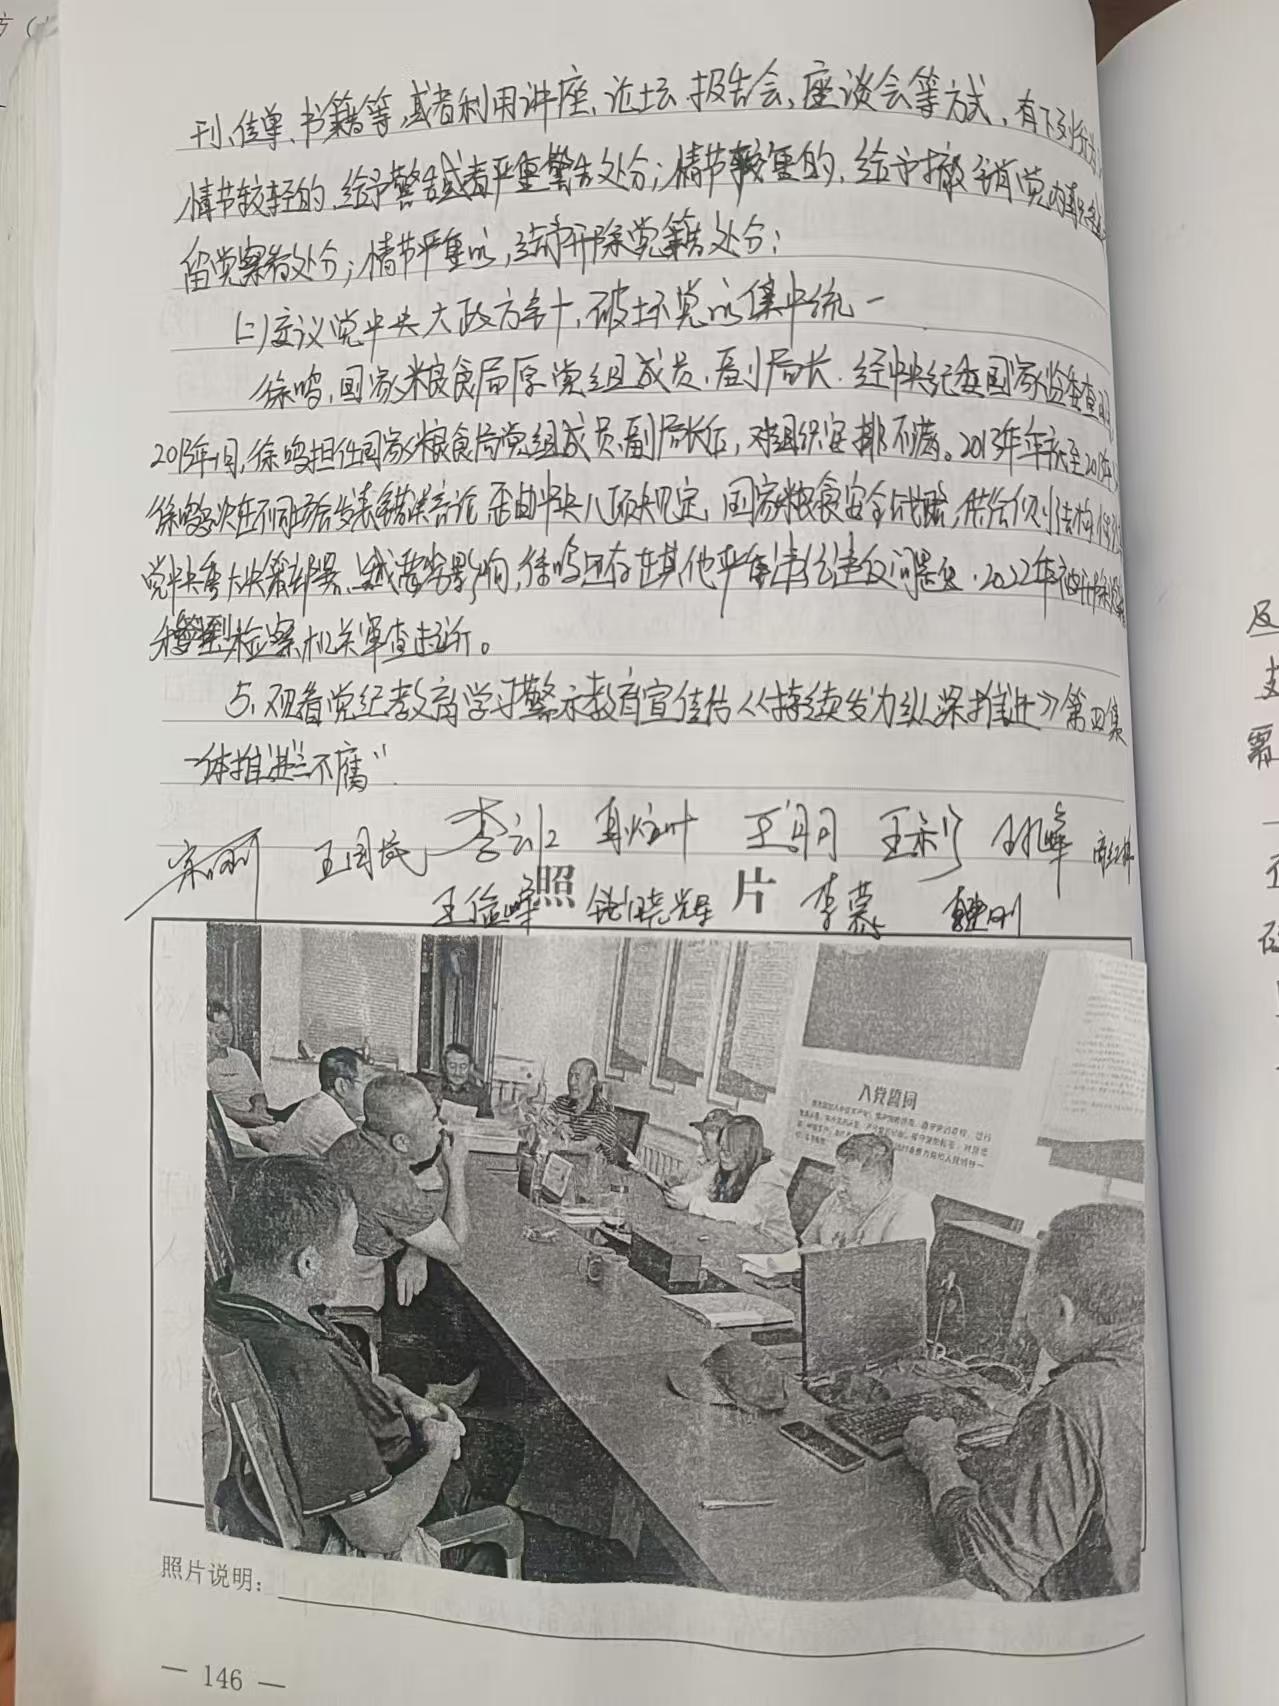 刊、传单、书籍等,或者利用讲座、论坛、报告会、座谈会等方式,有下列行为
情节较轻的,给予警告或者严重警告处分;情节较重的,给予撤销党内职务
留党察看处分;情节严重的,给予开除党籍处分:
(二)妄议党中央大政方针,破坏党的集中统一
徐鸣,国家粮食局原党组成员、副局长.经中央纪委国家监委查明,
徐鸣担任国家粮食局党组成员、副局长后,对组织安排不满。2013年年底至
徐鸣多次在不同场合发表错误言论,歪曲中央八项规定、国家粮食安全战略,供给侧结构性
党中央重大决策部署,造成恶劣影响,徐鸣还存在其他严重违纪违法问题.2022年被开除党籍
移送到检察机关审查起诉。
5.观看党纪教育学习警示教育宣传片《持续发力纵深推进》第四集
一体推进三不腐"
王国民 李 王 王利 峰
王俭峰 张晓辉 李慕 魏刚
照 片
入党誓词
照片说明:
— 146 —
及
支
需
一